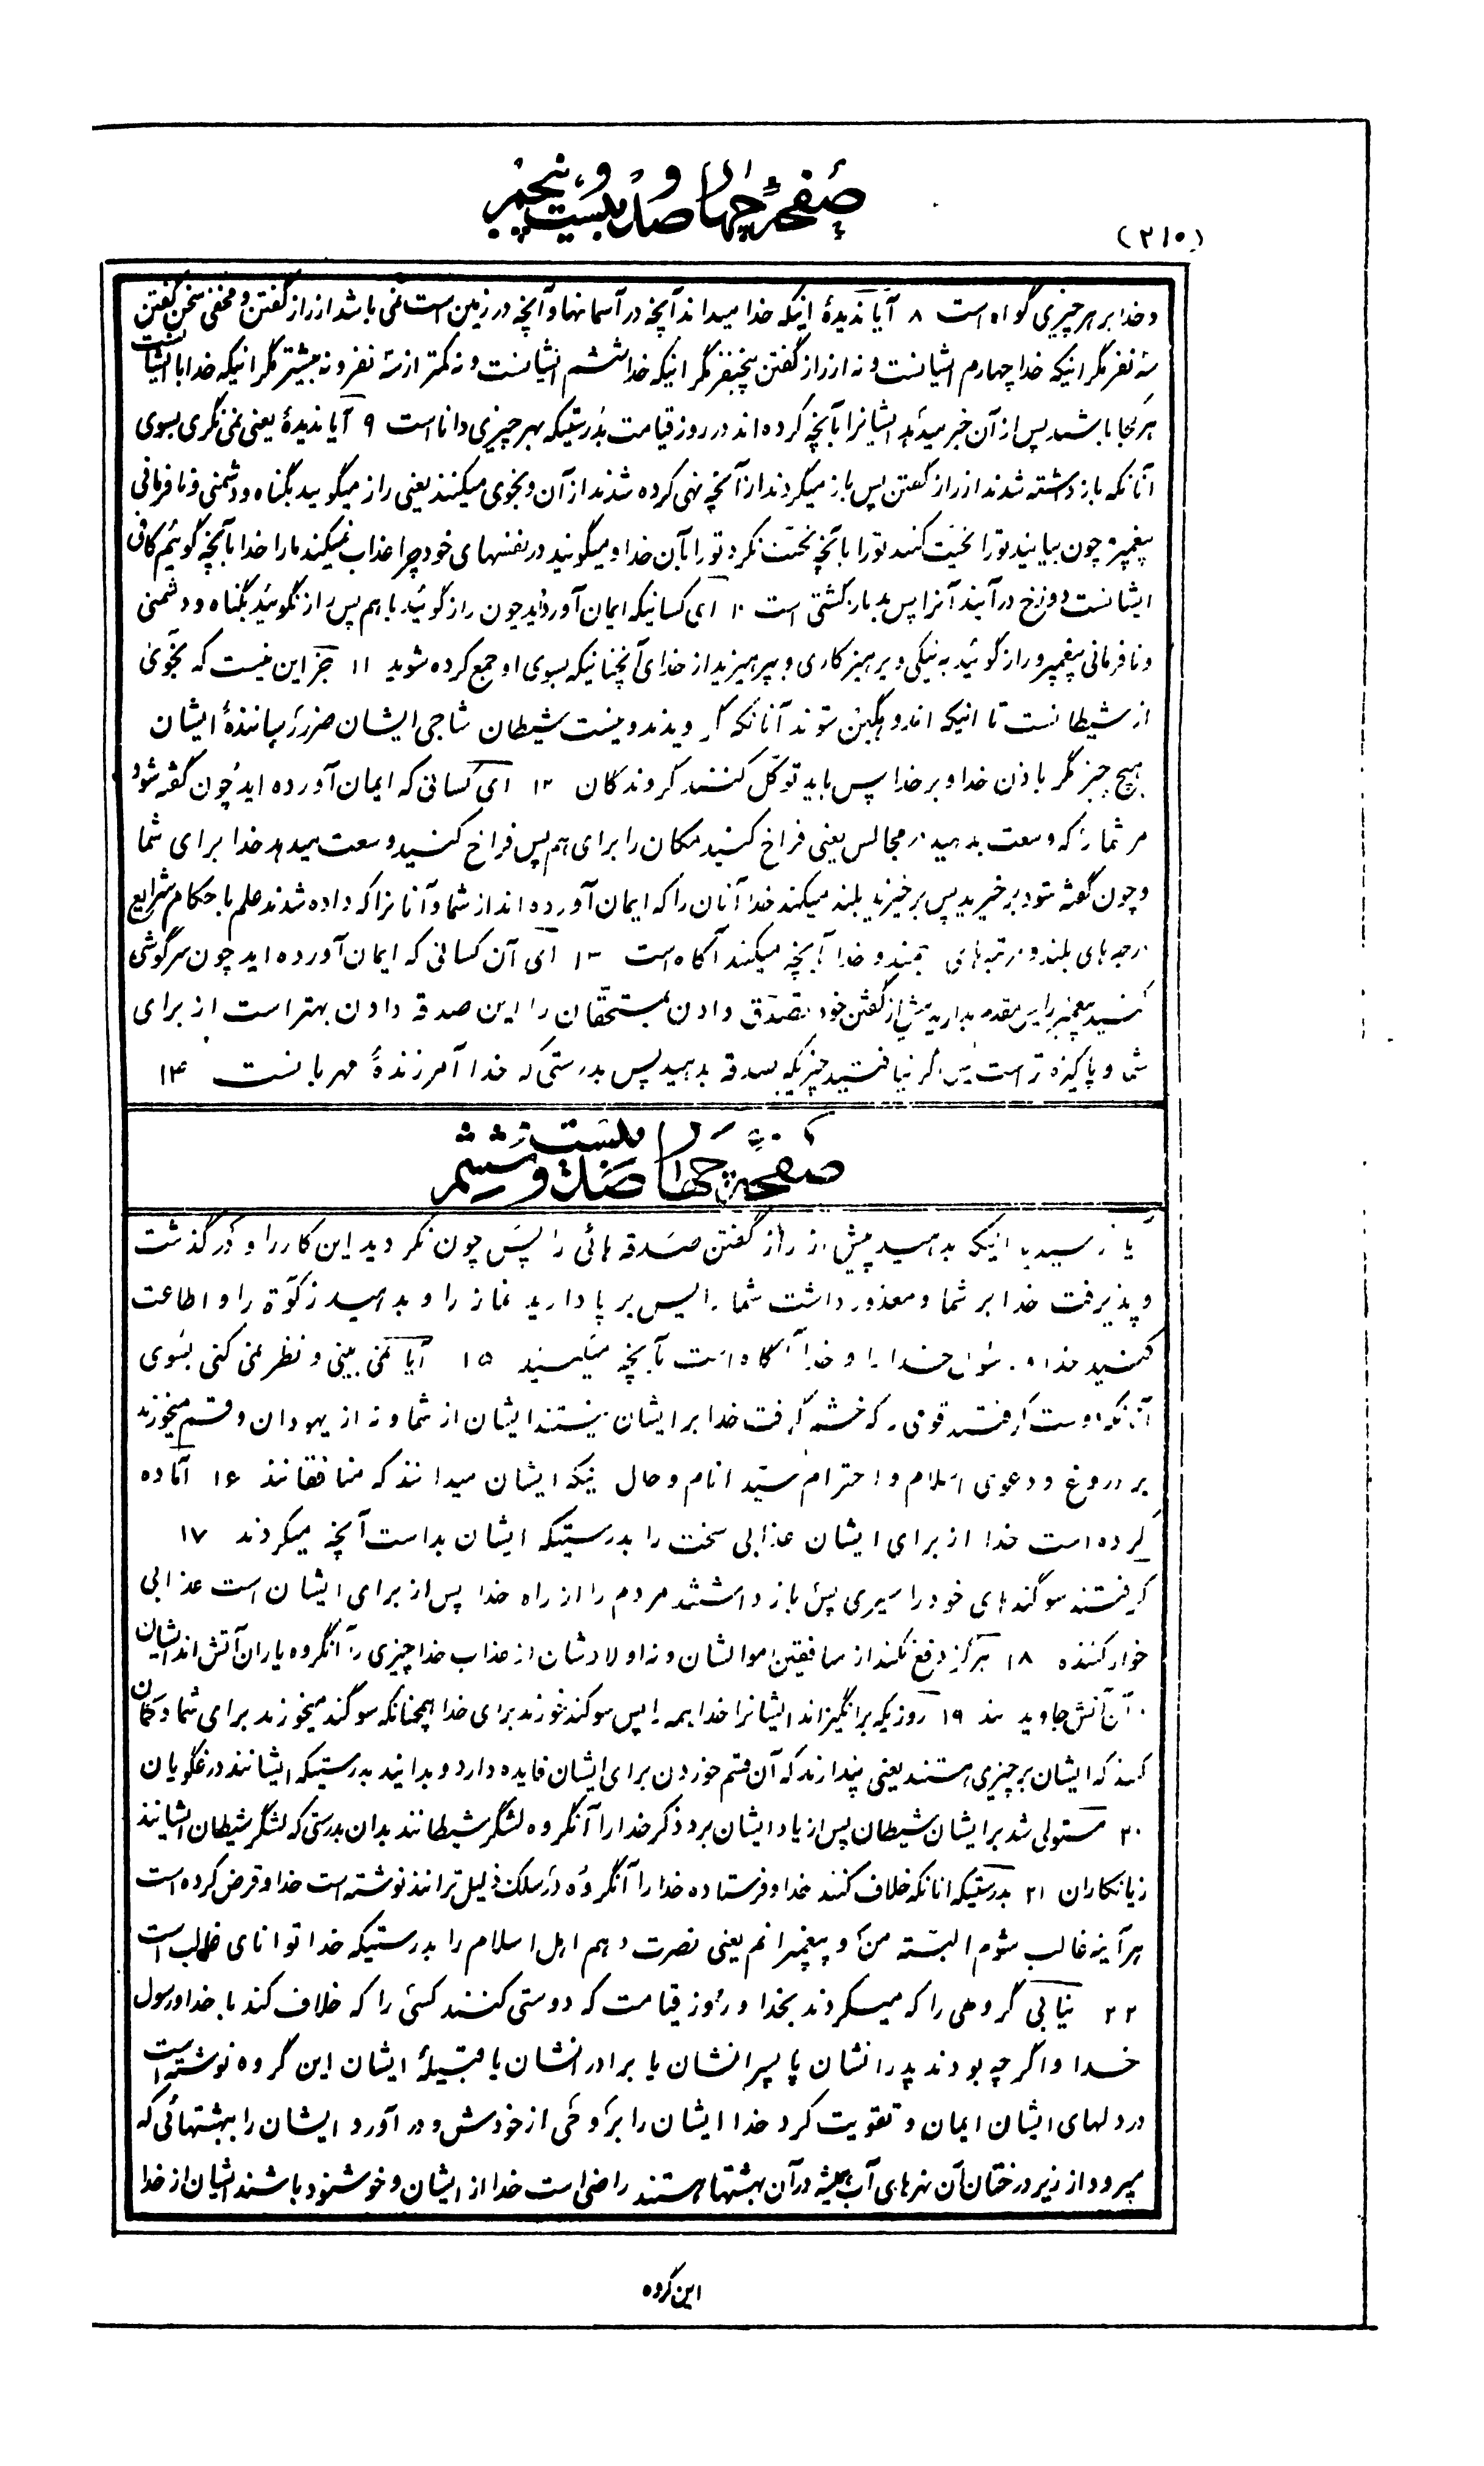 صفحهٔ چهار صد و بیست و پنجم
(۲۱۵)
و خدا بر هر چیزی گواه است ۸ آیا ندیدهٔ اینکه خدا میداند آنچه در آسمانها و آنچه در زمین است نمی باشد از راز گفتن و مخفی سخن گفتن
سه نفر مگر اینکه خدا چهارم ایشانست و نه از راز گفتن پنجنفر مگر اینکه خدا ششم ایشانست و نه کمتر از سه نفر و نه بیشتر مگر اینکه خدا با ایشانست
هر کجا باشند پس از آن خبر میدهد ایشانرا بآنچه کرده اند در روز قیامت بدرستیکه بهر چیزی دانا است ۹ آیا ندیدهٔ یعنی نمی نگری بسوی
آنانکه باز داشته شدند از راز گفتن پس باز میگردند از آنچه نهی کرده شدند از آن و نجوی میکنند یعنی راز میگویند بگناه و دشمنی و نافرمانی
پیغمبر و چون بیایند تو را تحیّت کنند تو را بآنچه تحیّت نکرد تو را بآن خدا و میگویند در نفسهای خود چرا عذاب نمیکند ما را خدا بآنچه گوئیم کافی
ایشانست دوزخ در آیند آنرا پس بد بازگشتی است ۱۰ ای کسانیکه ایمان آورده‌اید چون راز گوئید با هم پس راز نگوئید بگناه و دشمنی
و نافرمانی پیغمبر و راز گوئید به نیکی و پرهیزکاری و بپرهیزید از خدای آنچنانیکه بسوی او جمع کرده شوید ۱۱ جز این نیست که نجوی
از شیطانست تا اینکه اندوهگین شوند آنانکه گرویدند و نیست شیطان مناجی ایشان ضرر رسانندهٔ ایشان
هیچ چیز مگر باذن خدا و بر خدا پس باید توکّل کنند گروندگان ۱۲ ای کسانی که ایمان آورده اید چون گفته شود
مر شما را که وسعت بدهید در مجالس یعنی فراخ کنید مکان را برای هم پس فراخ کنید وسعت میدهد خدا برای شما
و چون گفته شود برخیزید پس برخیزید بلند میکند خدا آنان را که ایمان آورده اند از شما و آنانرا که داده شدند علم باحکام شرایع
درجه های بلند و مرتبه های ... و خدا بآنچه میکنند آگاه است ۱۳ ای آن کسانی که ایمان آورده اید چون سرگوشی
کنید پیغمبر را پس مقدم بدارید پیش از گفتن خود تصدّق دادن بمستحقّان را این صدقه دادن بهتر است از برای
شما و پاکیزه تر است پس اگر نیافتید چیزیکه صدقه بدهید پس بدرستی که خدا آمرزندهٔ مهربانست ۱۴
صفحهٔ چهار صد و بیست و ششم
آیا ترسیدید اینکه بدهید پیش از راز گفتن صدقه هائی را پس چون نکردید این کار را و در گذشت
و پذیرفت خدا بر شما و معذور داشت شما را پس بر پا دارید نماز را و بدهید زکوٰة را و اطاعت
کنید خدا و رسول خدا را و خدا آگاه است بآنچه میکنید ۱۵ آیا نمی بینی و نظر نمی کنی بسوی
آنانکه دوست گرفتند قومی را که خشم گرفت خدا بر ایشان نیستند ایشان از شما و نه از یهودان و قسم میخورند
بر دروغ و دعوی اسلام و احترام سیّد انام و حال اینکه ایشان میدانند که منافقانند ۱۶ آماده
کرده است خدا از برای ایشان عذابی سخت را بدرستیکه ایشان بد است آنچه میکردند ۱۷
گرفتند سوگندهای خود را سپری پس باز داشتند مردم را از راه خدا پس از برای ایشان است عذابی
خوار کننده ۱۸ هرگز دفع نکند از منافقین اموالشان و نه اولادشان از عذاب خدا چیزی را آنگروه یاران آتش اند ایشان
در آن آتش جاویدانند ۱۹ روزیکه برانگیزاند ایشانرا خدا همه را پس سوگند خورند برای خدا همچنانکه سوگند میخورند برای شما و گمان
کنند که ایشان بر چیزی هستند یعنی پندارند که آن قسم خوردن برای ایشان فایده دارد و بدانید بدرستیکه ایشانند دروغگویان
۲۰ مستولی شد بر ایشان شیطان پس از یاد ایشان برد ذکر خدا را آنگروه لشگر شیطانند بدان بدرستی که لشگر شیطان ایشانند
زیانکاران ۲۱ بدرستیکه آنانکه خلاف کنند خدا و فرستاده خدا را آنگروه در سلک ذلیل ترانند نوشته است خدا و فرض کرده است
هر آینه غالب شوم البتّه من و پیغمبرانم یعنی نصرت دهم اهل اسلام را بدرستیکه خدا توانای غالب است
۲۲ نیابی گروهی را که میگروند بخدا و روز قیامت که دوستی کنند کسی را که خلاف کند با خدا و رسول
خدا و اگر چه بودند پدرانشان یا پسرانشان یا برادرانشان یا قبیلهٔ ایشان این گروه نوشته است
در دلهای ایشان ایمان و تقویت کرد خدا ایشان را بروحی از خودش و در آورد ایشان را ببهشتهائی که
میرود از زیر درختان آن نهرهای آب همیشه در آن بهشتها هستند راضی است خدا از ایشان و خوشنود باشند ایشان از خدا
این گروه